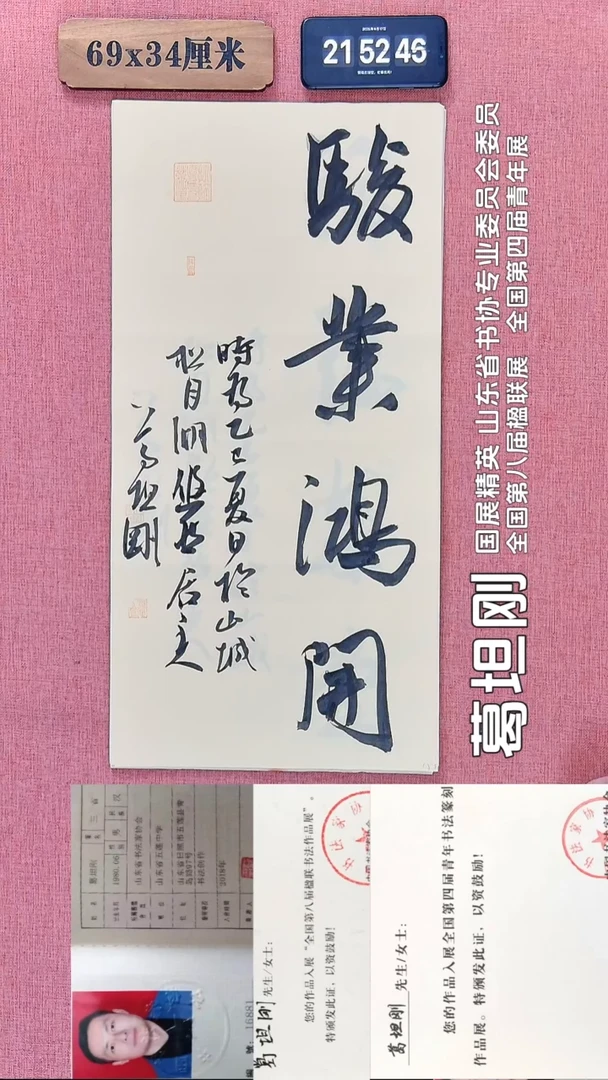 69x34厘米
21 52 46
駿業鴻開
時為乙巳夏日於山城
松月湖
居主
葛坦剛
葛坦刚
国展精英 山东省书协专业委员会委员
全国第八届楹联展 全国第四届青年展
葛坦刚
1980.06
山东省书法家协会
山东省五莲中学
2018年
16881
葛坦刚 先生/女士：
您的作品入展“全国第八届楹联书法作品展”。
特颁发此证，以资鼓励！
葛坦刚 先生/女士：
您的作品入展全国第四届青年书法篆刻
作品展。特颁发此证，以资鼓励！